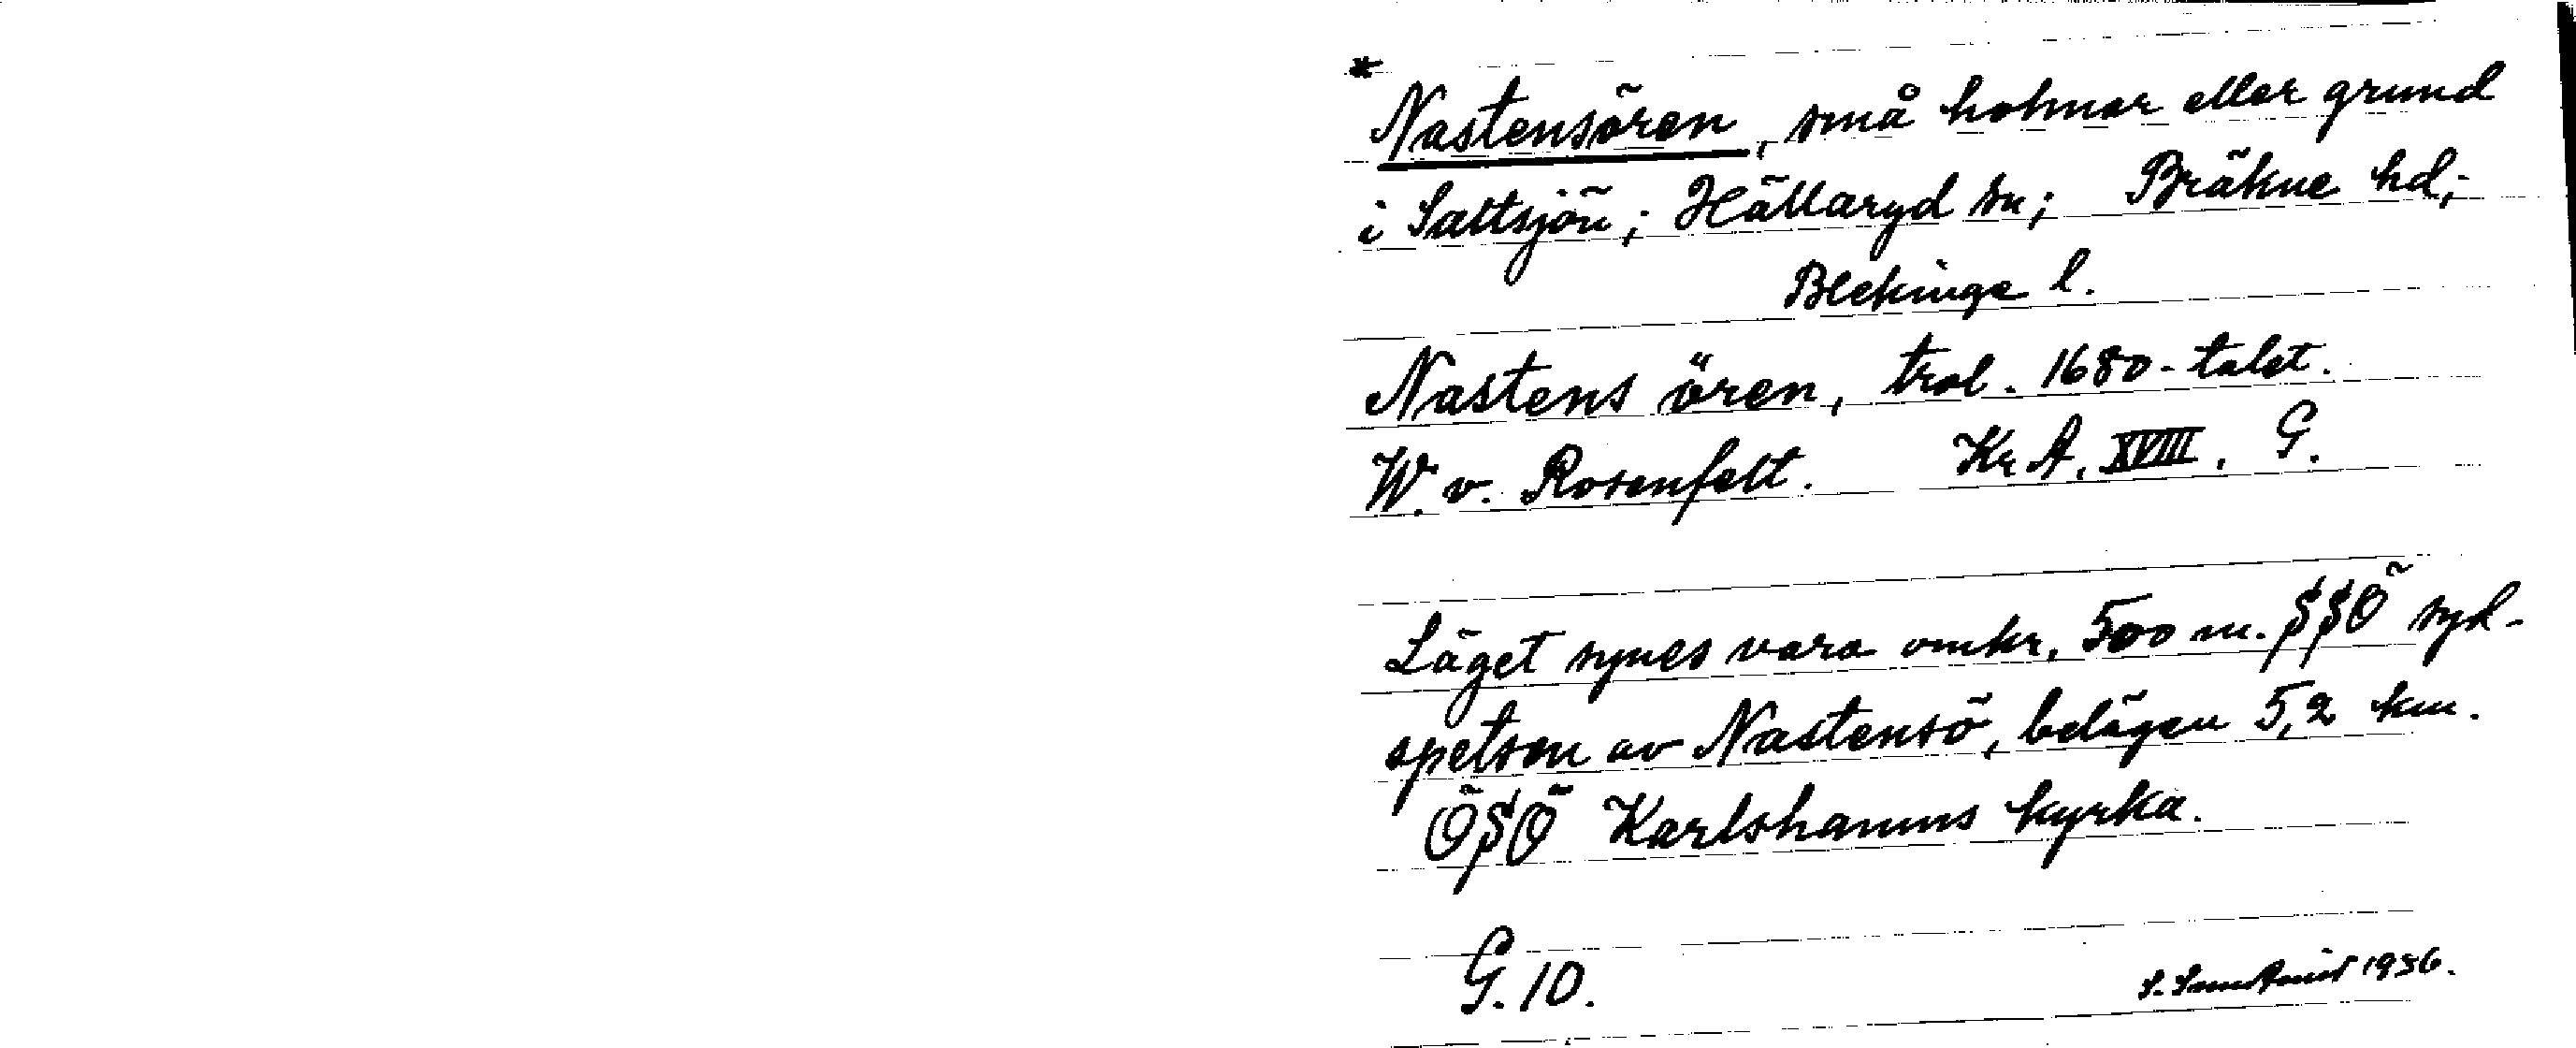 *
Nastensören, små holmar eller grund
i Saltsjön; Hällaryd sn; Bräkne hd;
Blekinge l.
Nastens ören, trol. 1680-talet.
W. v. Rosenfelt. Kr A. XVIII. G.
Läget synes vara omkr. 500 m. SSÖ syd-
spetsen av Nastensö, belägen 5,2 km.
ÖSÖ Karlshamns kyrka.
G. 10.
S. 1956.